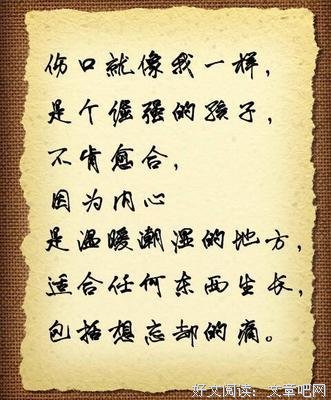 伤口就像我一样，
是个倔强的孩子，
不肯愈合，
因为内心
是温暖潮湿的地方，
适合任何东西生长，
包括想忘却的痛。
好文阅读：文章吧网